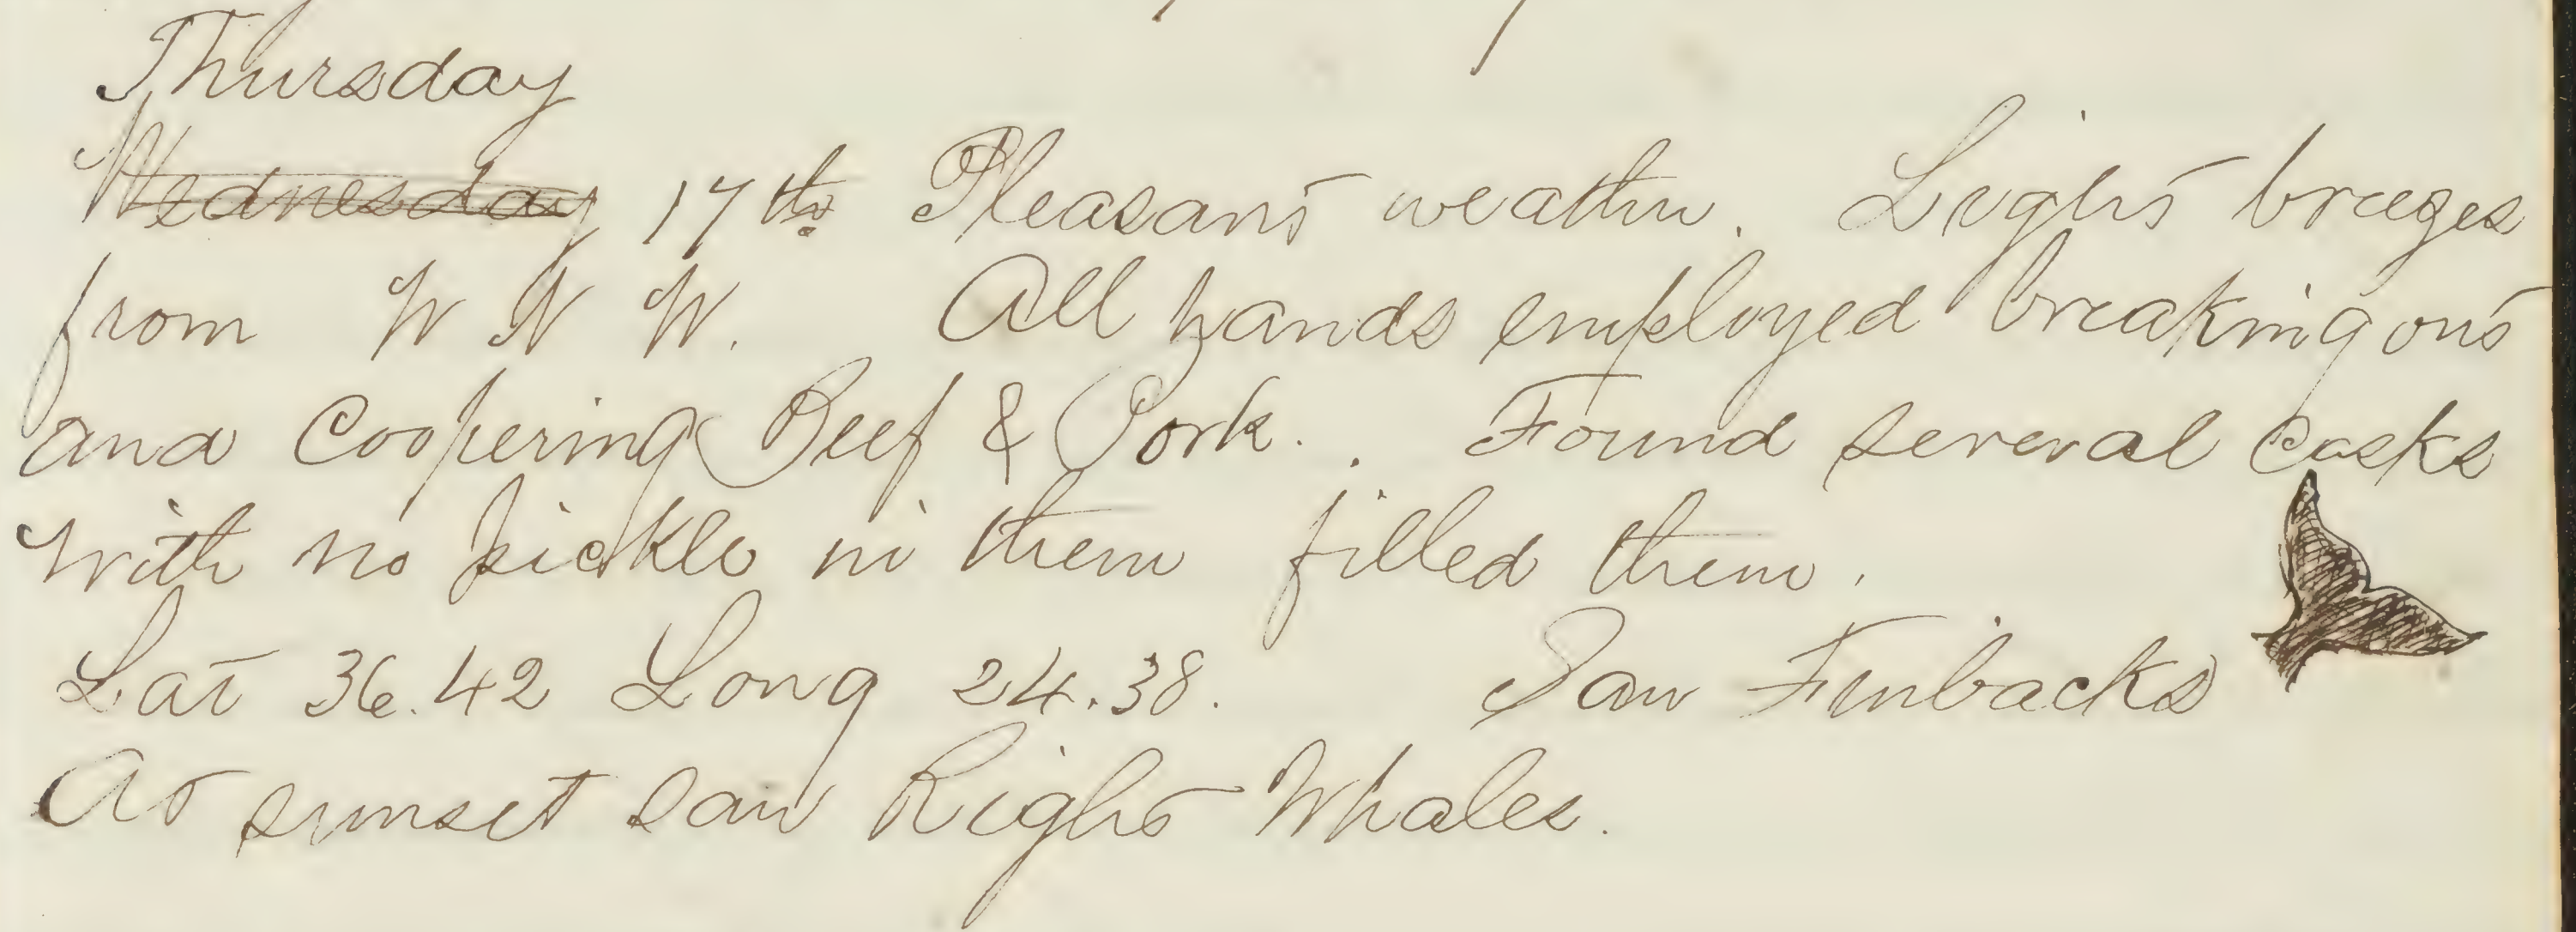 Thursday
Wednesday 17th Pleasant weather. Light breezes
from W N W. All hands employed breaking out
and Coopering Beef & Pork. . Found several Casks
with no pickle in them filled them.
Lat 36.42 Long 24.38. Saw Finbacks
At sunset saw Right Whales.